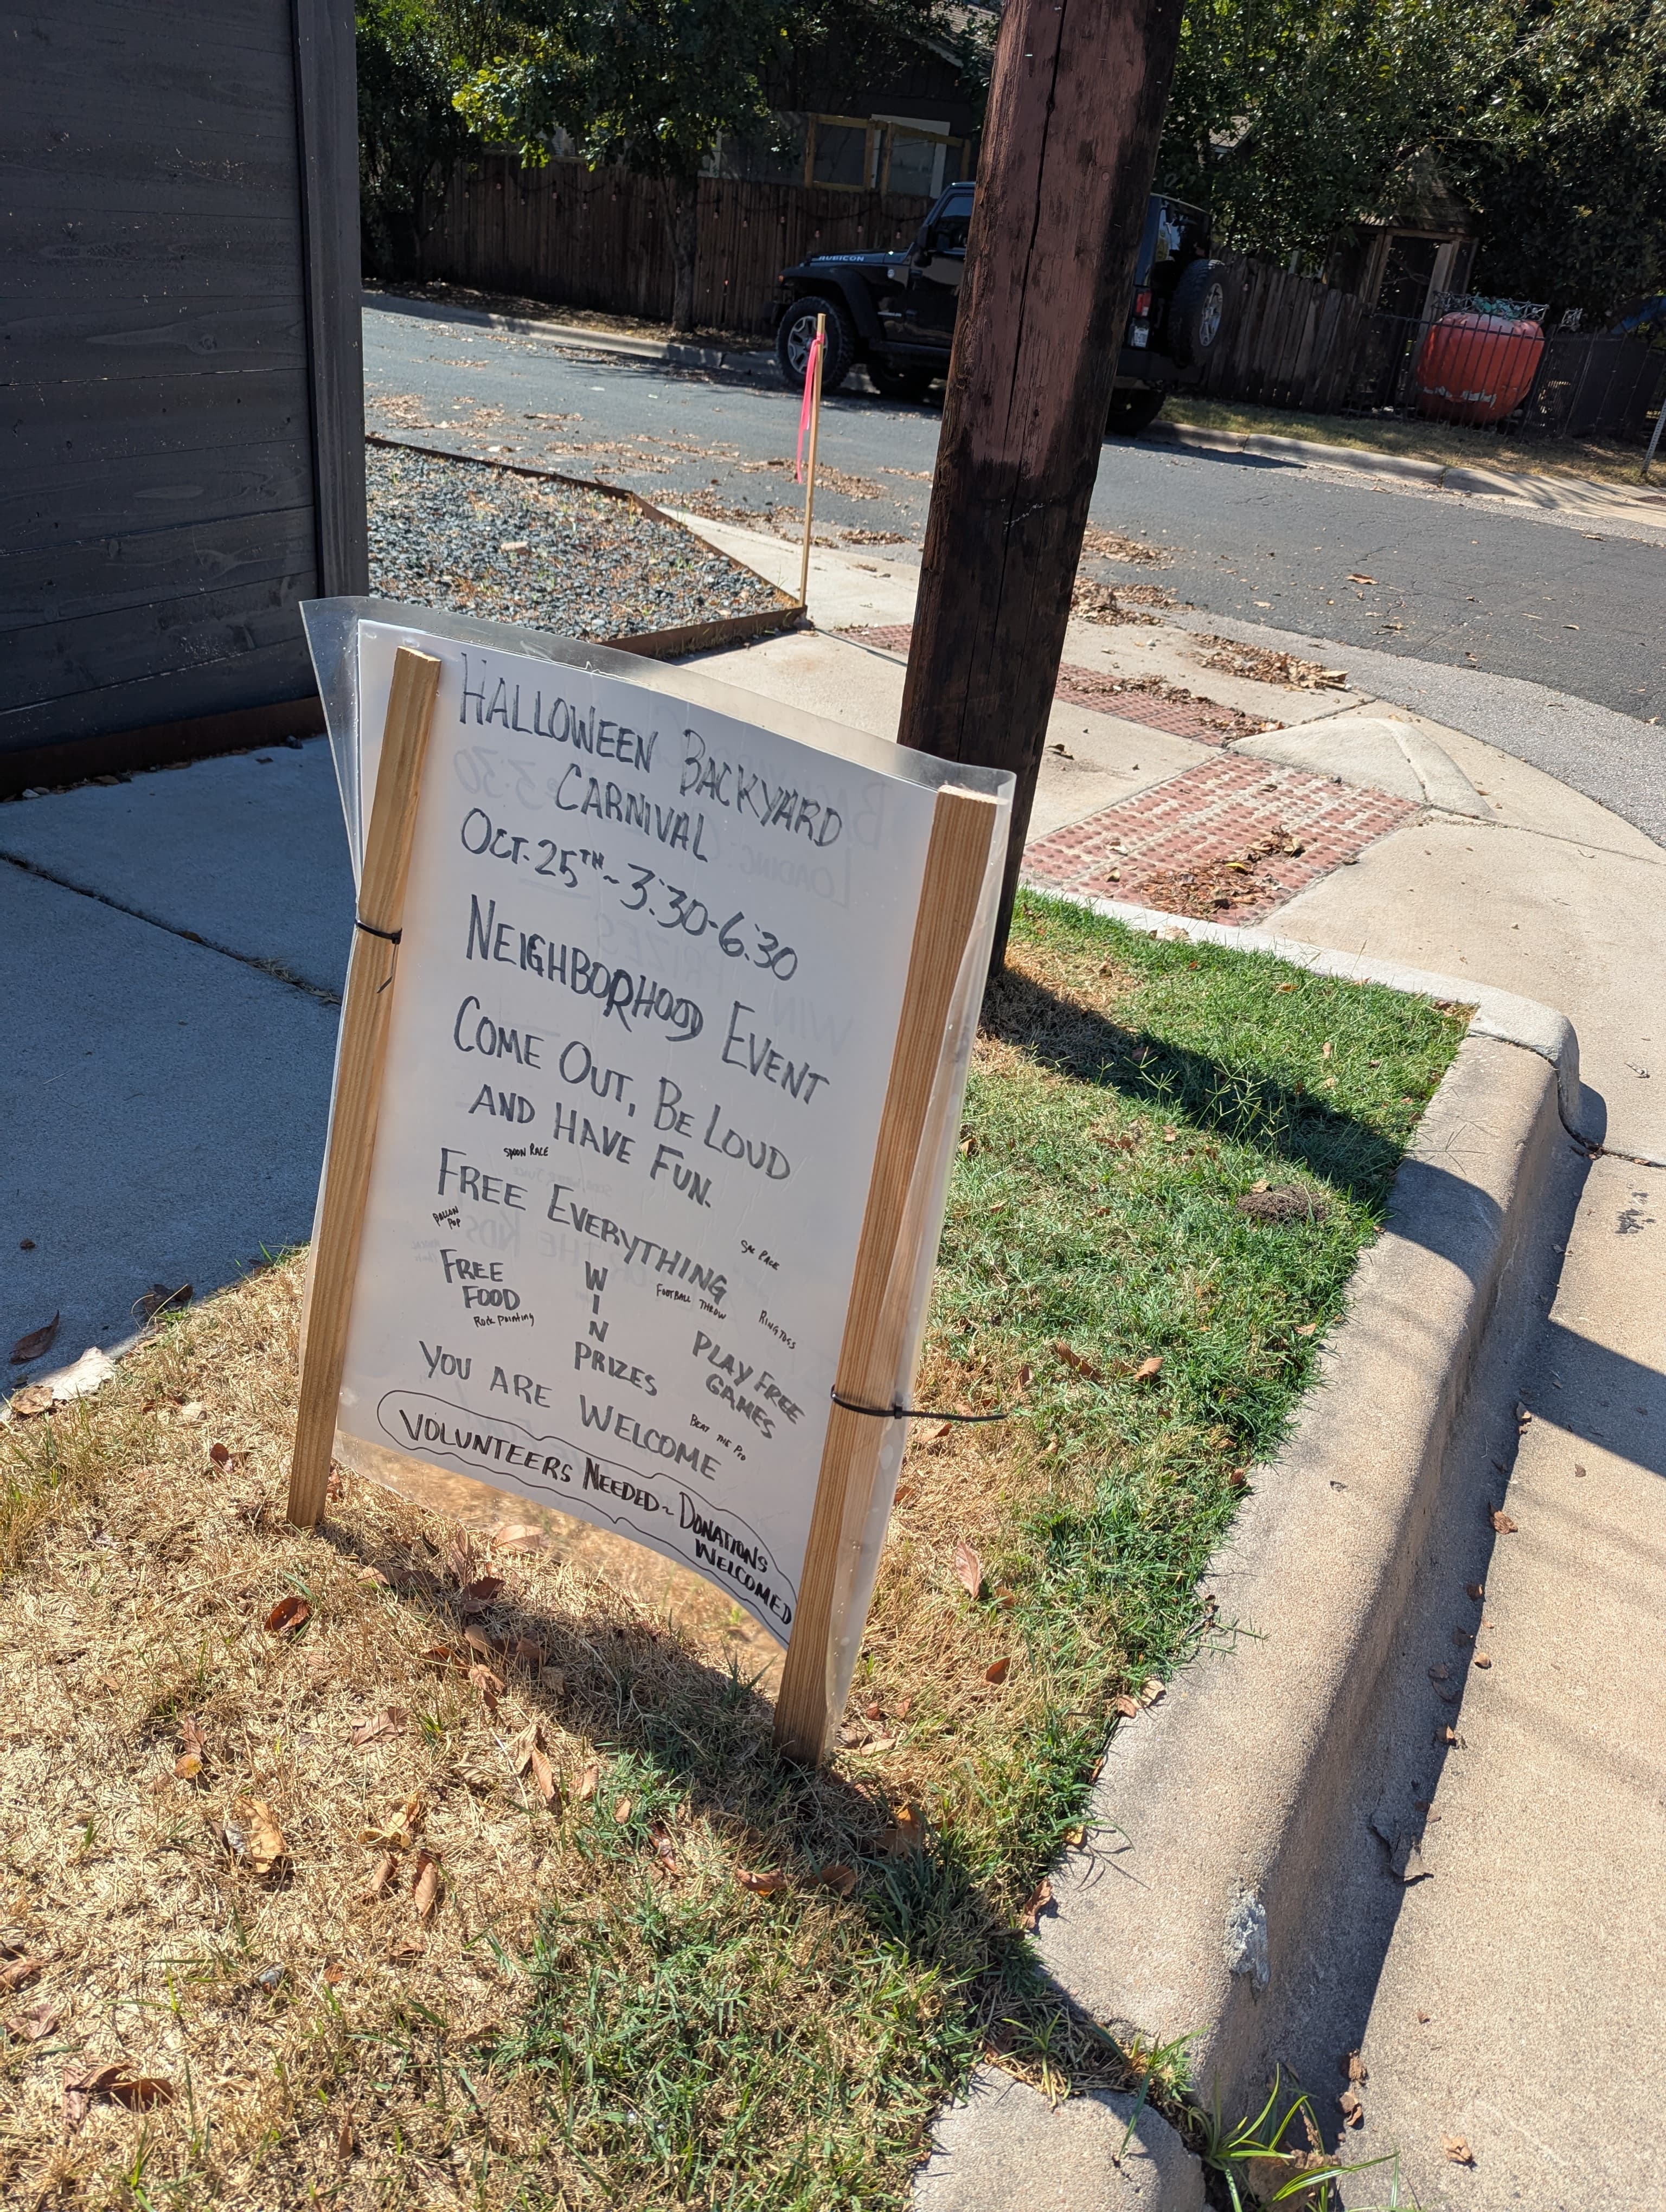 RUBICON
HALLOWEEN BACKYARD
CARNIVAL
OCT. 25TH ~ 3:30-6:30
NEIGHBORHOOD EVENT
COME OUT, BE LOUD
AND HAVE FUN.
SPOON RACE
FREE EVERYTHING
BALLON
POP
SAC RACE
FREE
FOOD
Rock painting
W
I
N
PRIZES
FOOTBALL THROW
RING TOSS
PLAY FREE
GAMES
YOU ARE WELCOME
BEAT THE PRO
VOLUNTEERS NEEDED ~ DONATIONS
WELCOMED